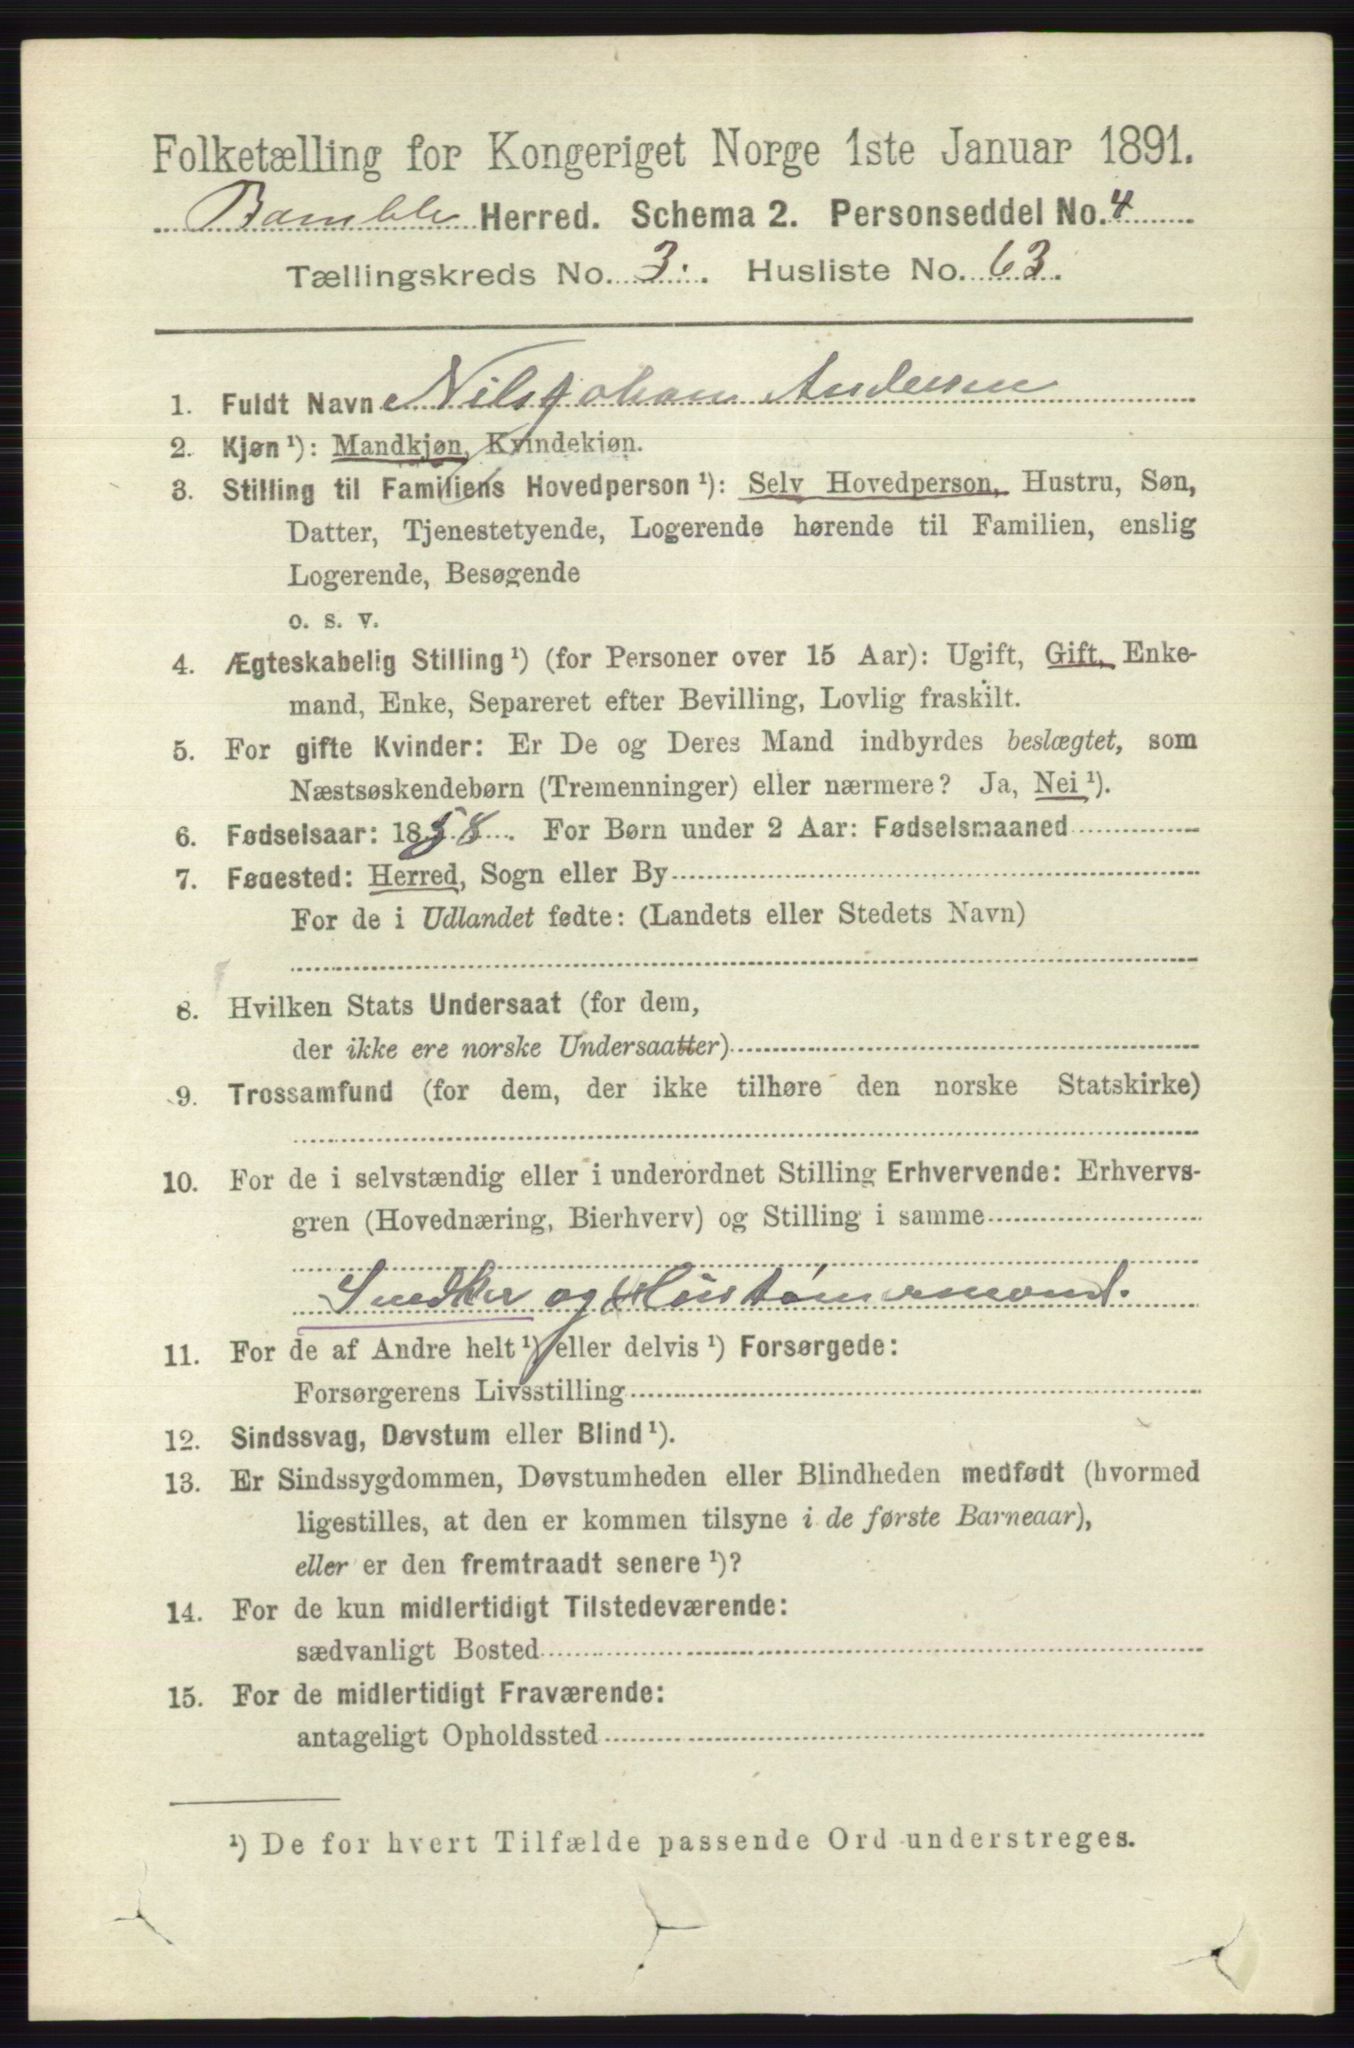 Folketælling for Kongeriget Norge 1ste Januar 1891.
Bamble Herred. Schema 2. Personseddel No. 4
Tællingskreds No. 3. Husliste No. 63.
1. Fuldt Navn Nils Johan Andersen
2. Kjøn ¹): Mandkjøn, Kvindekjøn.
3. Stilling til Familiens Hovedperson ¹): Selv Hovedperson, Hustru, Søn,
Datter, Tjenestetyende, Logerende hørende til Familien, enslig
Logerende, Besøgende
o. s. v.
4. Ægteskabelig Stilling ¹) (for Personer over 15 Aar): Ugift, Gift, Enke-
mand, Enke, Separeret efter Bevilling, Lovlig fraskilt.
5. For gifte Kvinder: Er De og Deres Mand indbyrdes beslægtet, som
Næstsøskendebørn (Tremenninger) eller nærmere? Ja, Nei ¹).
6. Fødselsaar: 1858. For Børn under 2 Aar: Fødselsmaaned
7. Fødested: Herred, Sogn eller By
For de i Udlandet fødte: (Landets eller Stedets Navn)
8. Hvilken Stats Undersaat (for dem,
der ikke ere norske Undersaatter)
9. Trossamfund (for dem, der ikke tilhøre den norske Statskirke)
10. For de i selvstændig eller i underordnet Stilling Erhvervende: Erhvervs-
gren (Hovednæring, Bierhverv) og Stilling i samme
Snedker og Hustømermand.
11. For de af Andre helt ¹) eller delvis ¹) Forsørgede:
Forsørgerens Livsstilling
12. Sindssvag, Døvstum eller Blind ¹).
13. Er Sindssygdommen, Døvstumheden eller Blindheden medfødt (hvormed
ligestilles, at den er kommen tilsyne i de første Barneaar),
eller er den fremtraadt senere ¹)?
14. For de kun midlertidigt Tilstedeværende:
sædvanligt Bosted
15. For de midlertidigt Fraværende:
antageligt Opholdssted
¹) De for hvert Tilfælde passende Ord understreges.